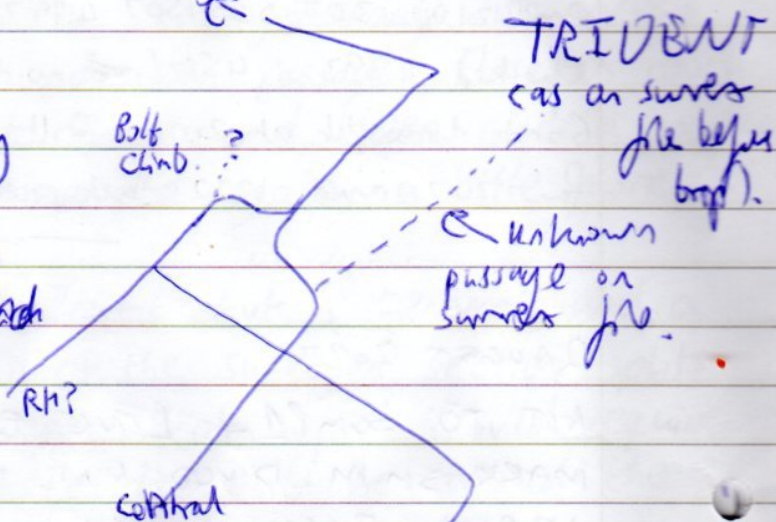 TRIDENT
(as on survex
file before
Bolt
climb
?
unknown
passage on
survex file.
RH?